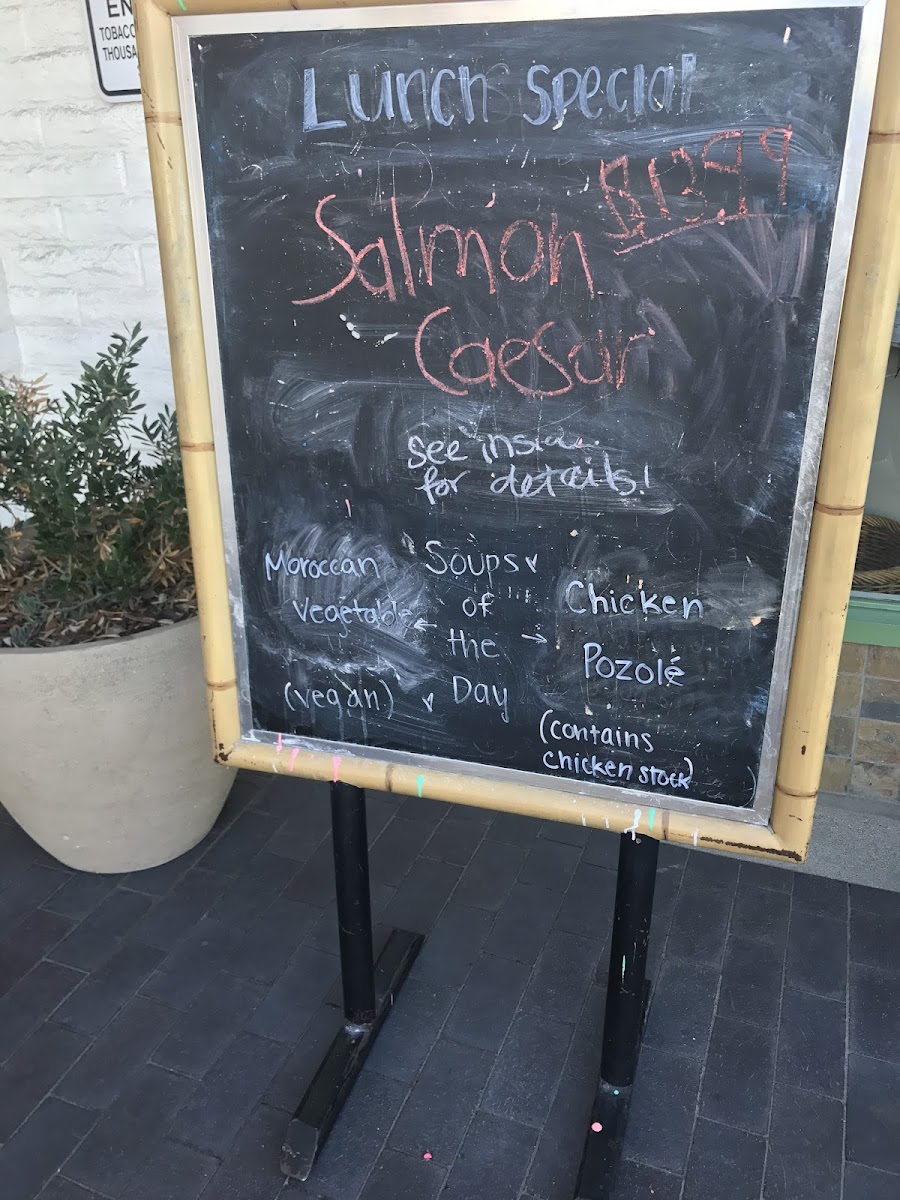 EN
TOBACCO
THOUSA
Lunch special
$13.99
Salmon
Caesar
see inside
for details!
Soups
of
the
Day
Moroccan
Vegetable
(vegan)
Chicken
Pozolé
(contains
chicken stock)